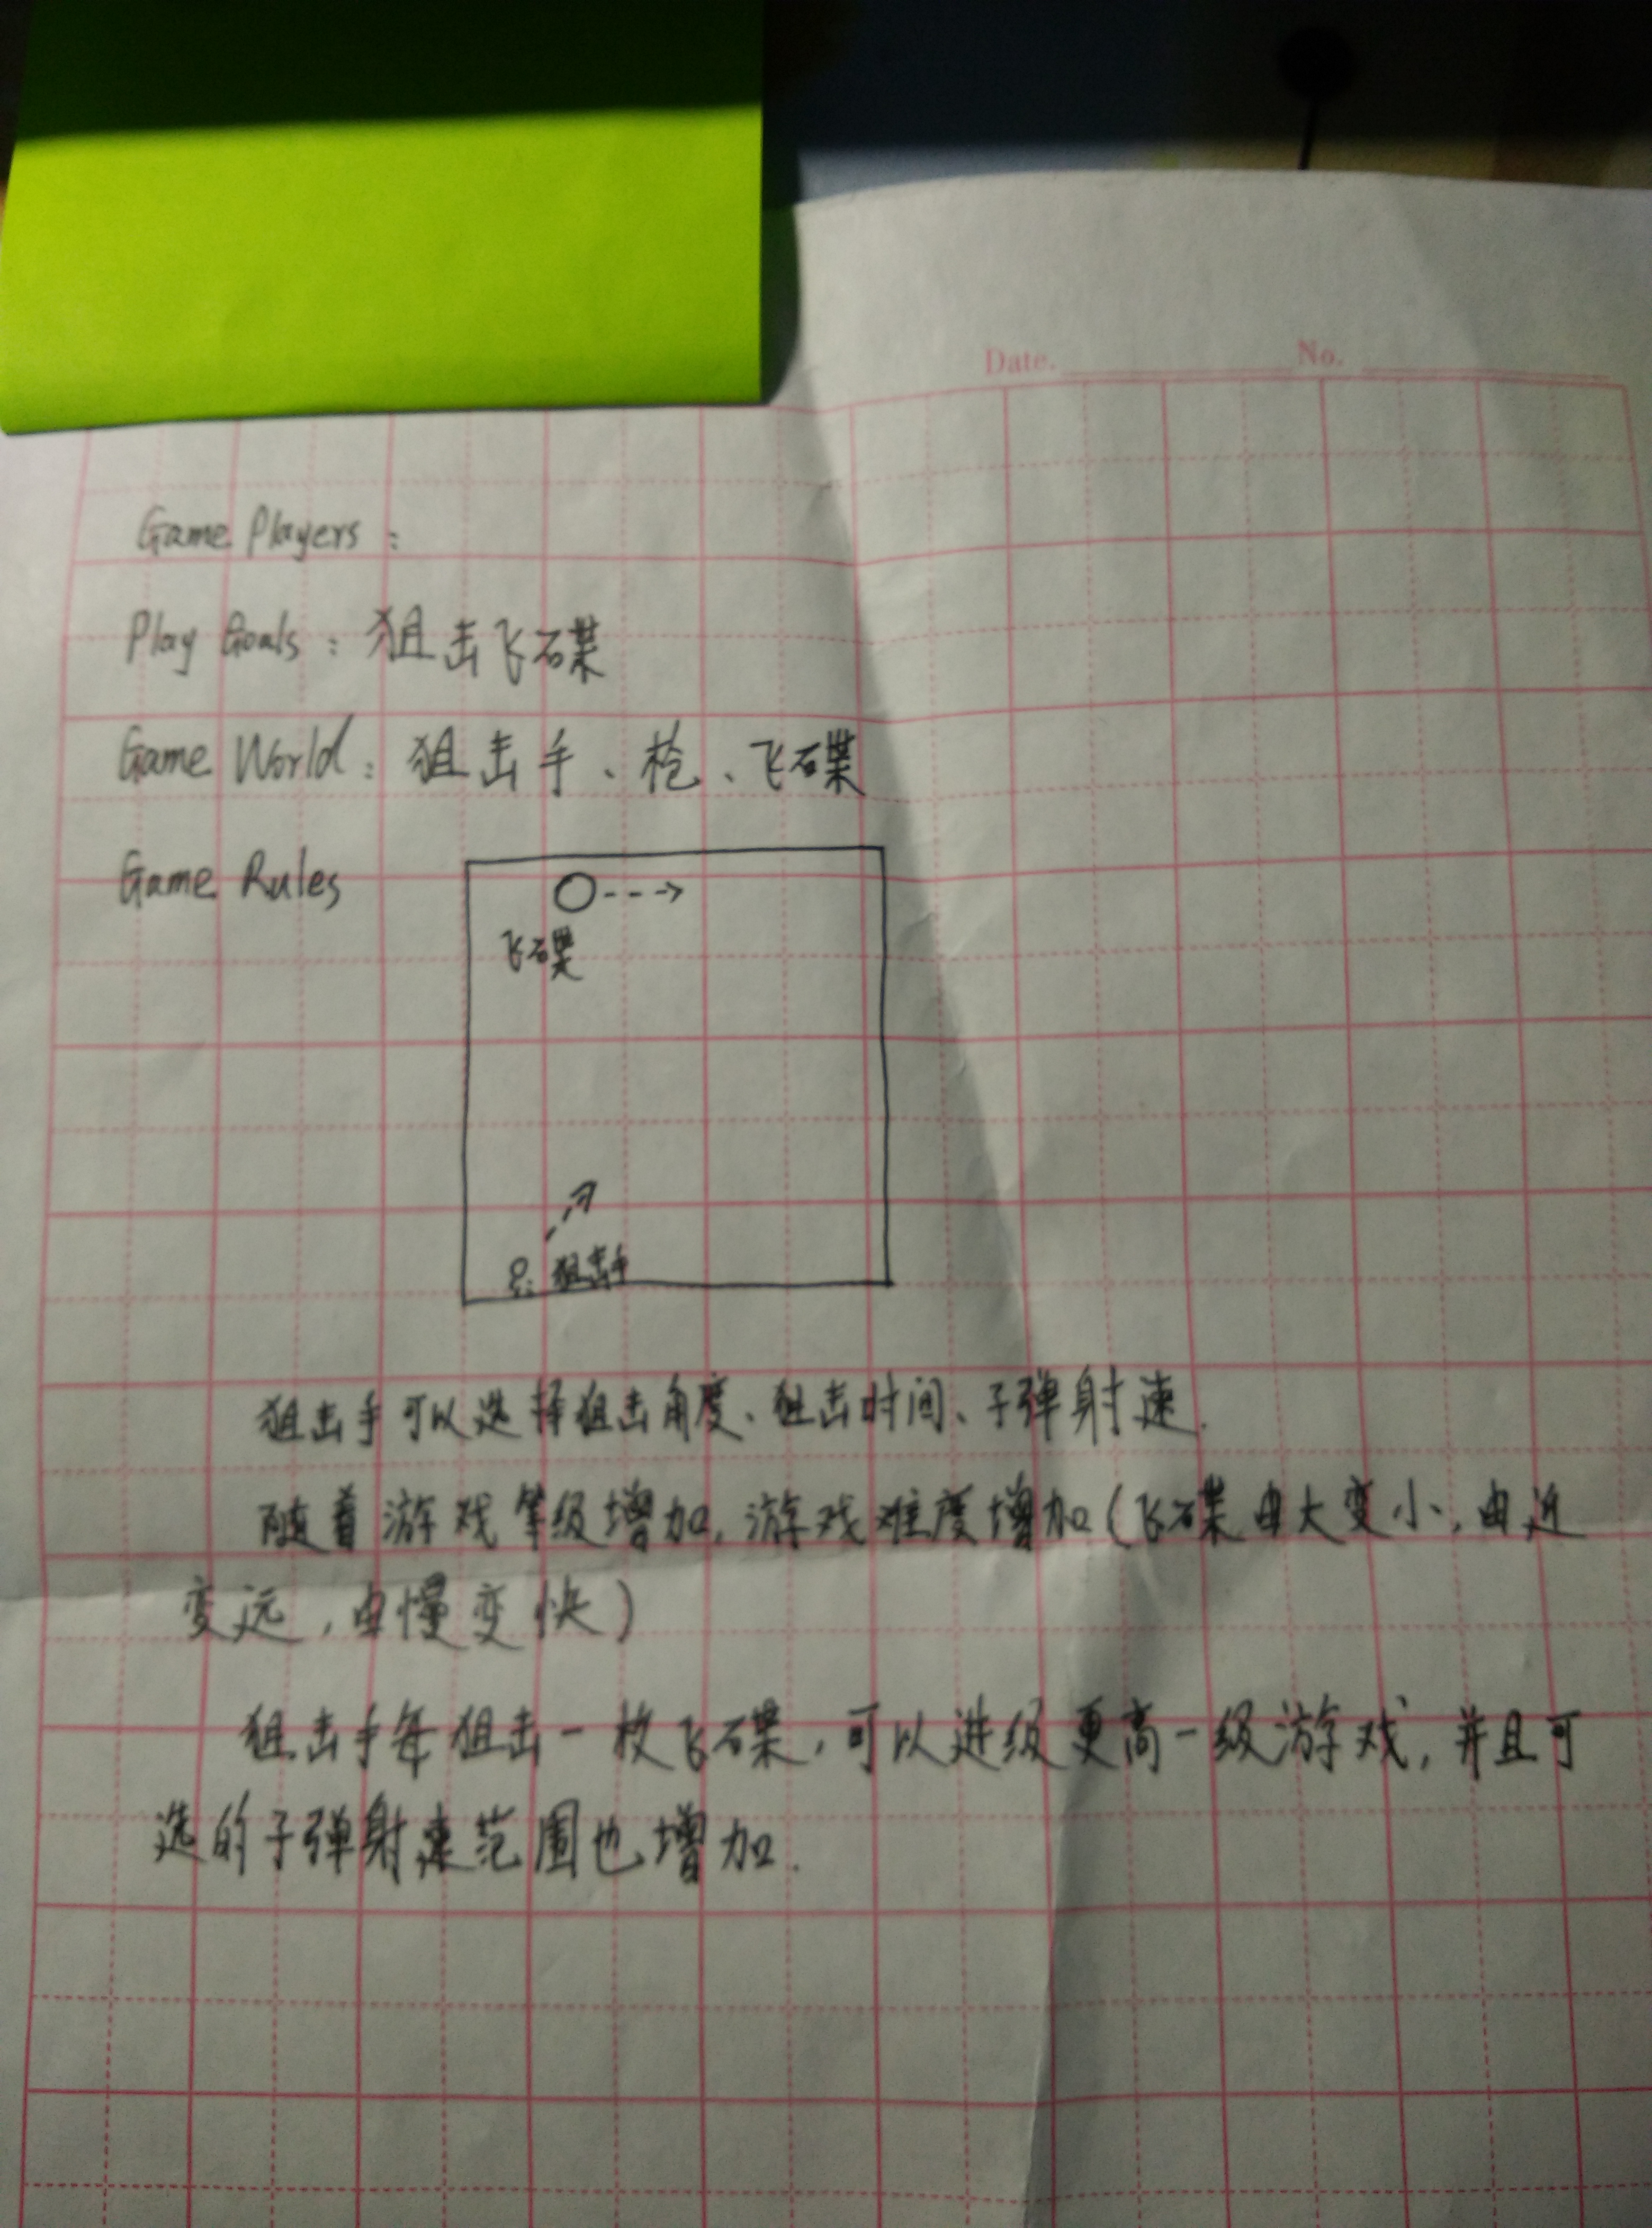 Date. No.
Game Players :
Play Goals : 狙击飞碟
Game World : 狙击手、枪、飞碟
Game Rules
飞碟
狙击手
狙击手可以选择狙击角度、狙击时间、子弹射速.
随着游戏等级增加,游戏难度增加(飞碟由大变小,由近
变远,由慢变快)
狙击手每狙击一枚飞碟,可以进级更高一级游戏,并且可
选的子弹射速范围也增加.